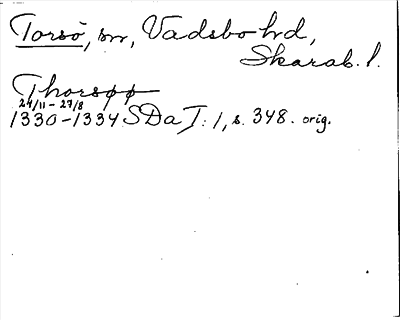 Torsö, sn, Vadsbo hd,
Skarab. l.
Thorsøø
24/11 - 27/8
1330-1334 SDa I: 1, s. 348. orig.